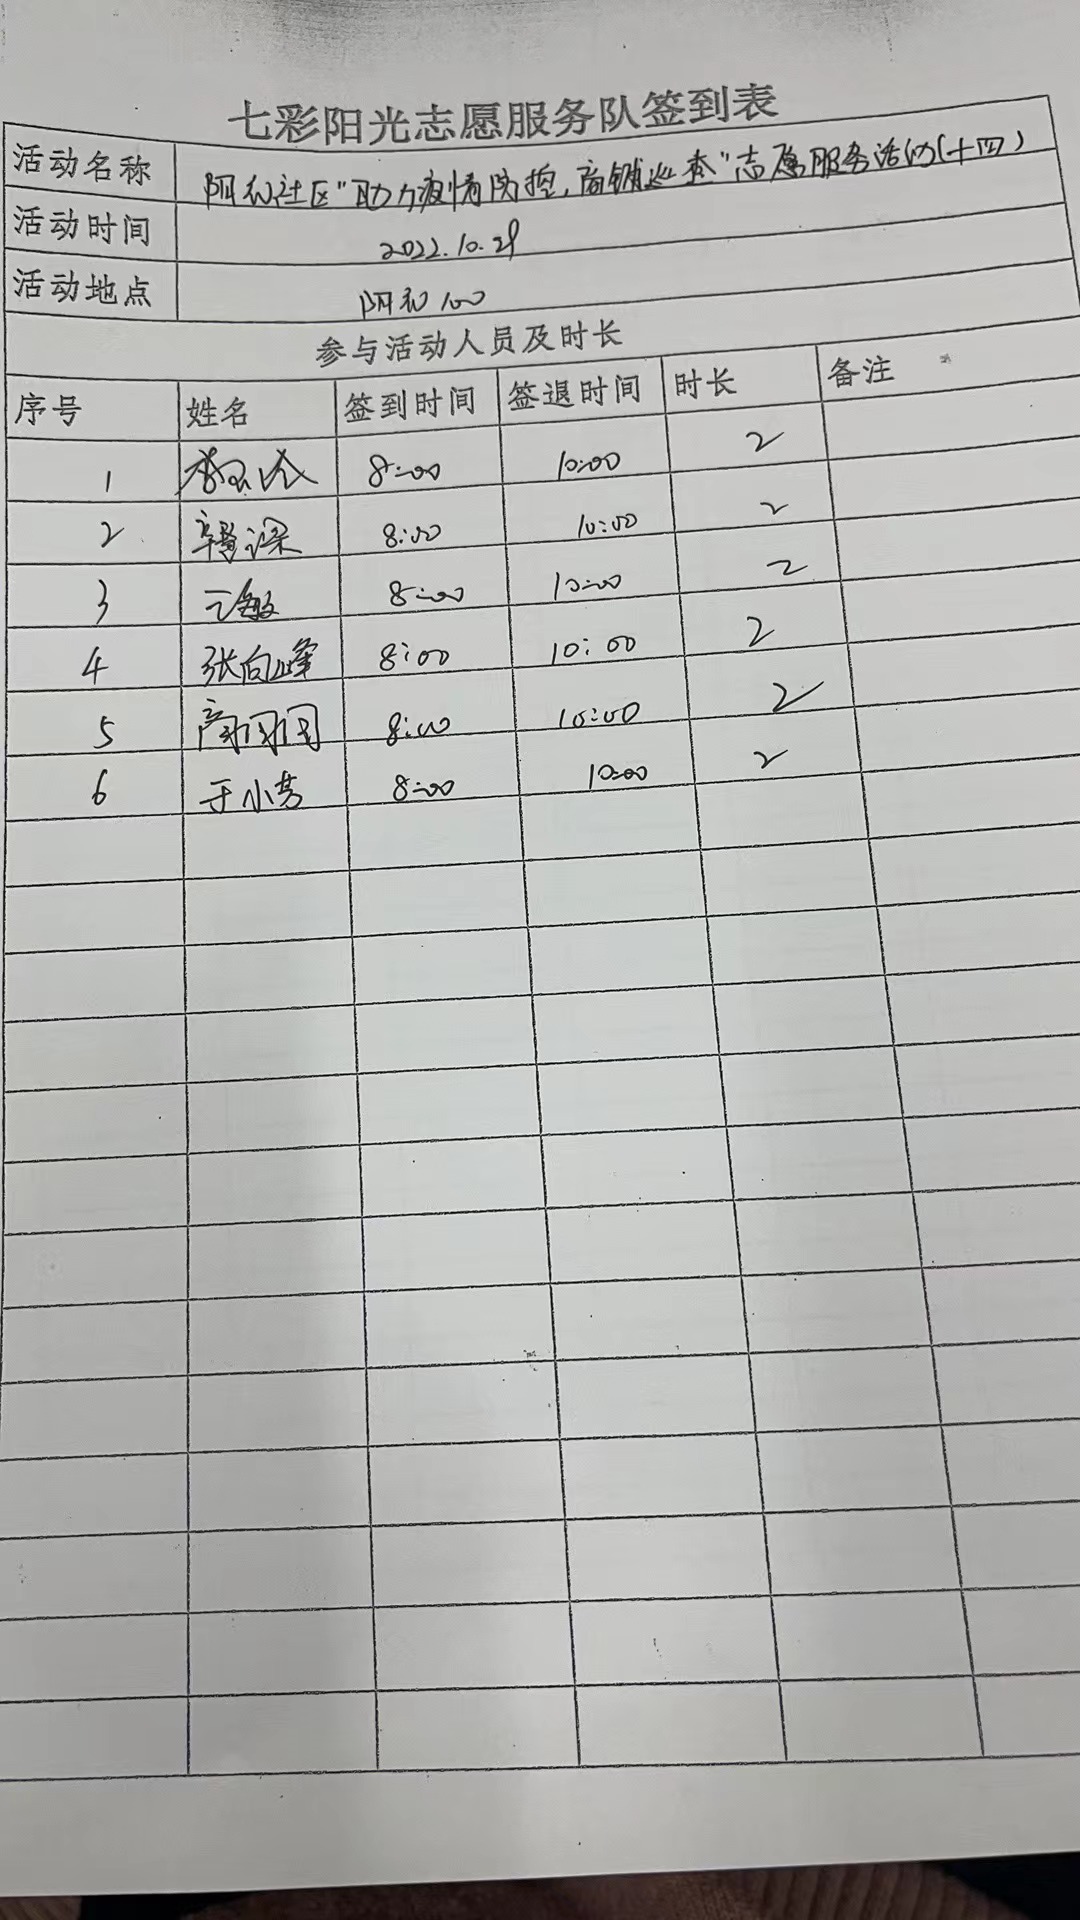 七彩阳光志愿服务队签到表
活动名称 阿和社区"助力疫情防控,商铺巡查"志愿服务活动(十四)
活动时间 2022.10.29
活动地点 阿和100
参与活动人员及时长
序号 姓名 签到时间 签退时间 时长 备注
1 8:00 10:00 2
2 8:00 10:00 2
3 8:00 10:00 2
4 张向峰 8:00 10:00 2
5 商闪闪 8:00 10:00 2
6 于小芳 8:00 10:00 2